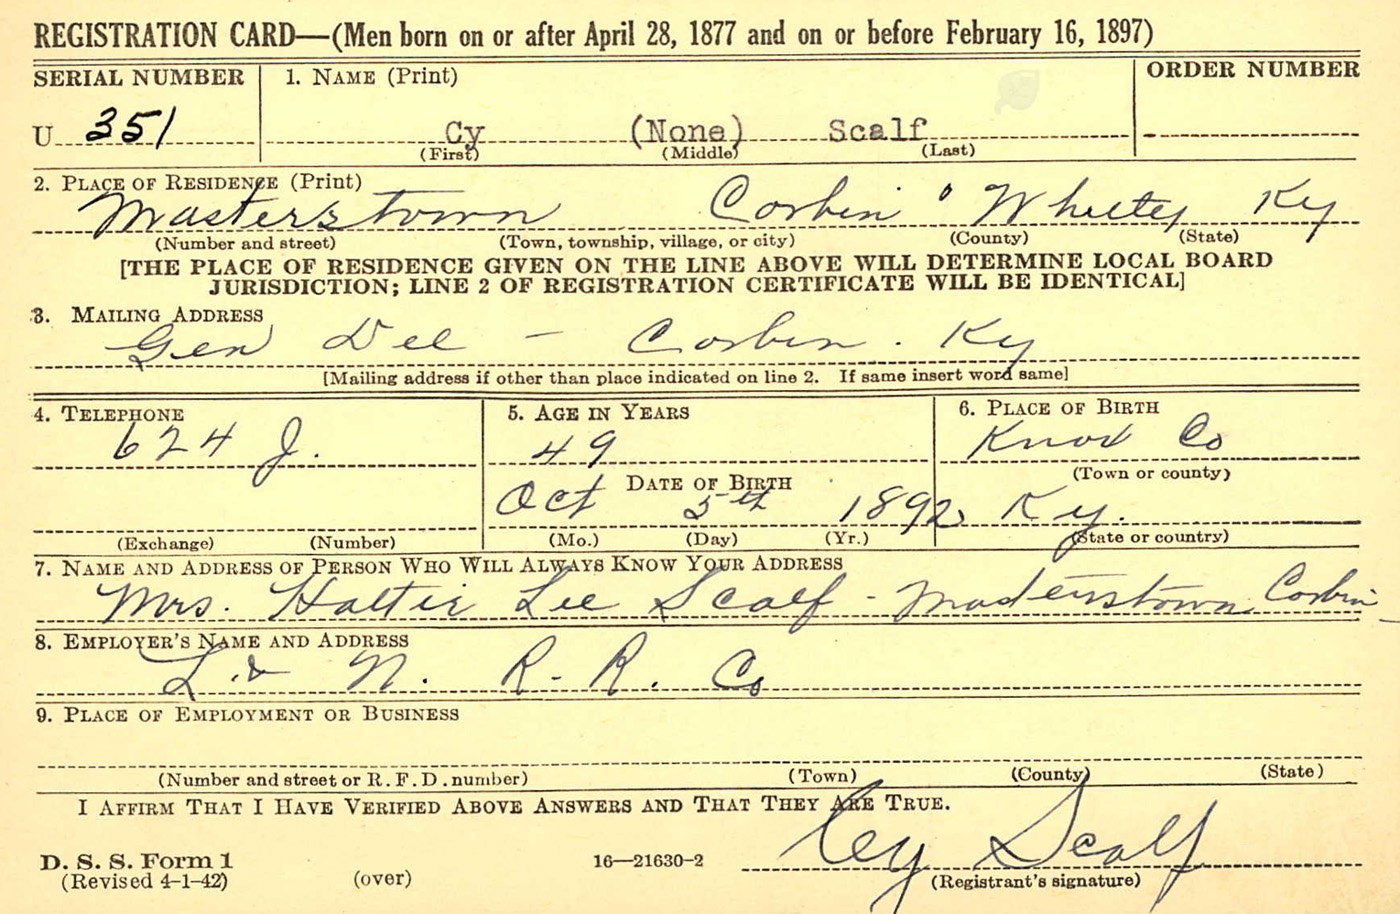 REGISTRATION CARD—(Men born on or after April 28, 1877 and on or before February 16, 1897)
SERIAL NUMBER 1. NAME (Print) ORDER NUMBER
U 351 Cy (None) Scalf
(First) (Middle) (Last)
2. PLACE OF RESIDENCE (Print)
Masterstown Corbin Whitley Ky
(Number and street) (Town, township, village, or city) (County) (State)
[THE PLACE OF RESIDENCE GIVEN ON THE LINE ABOVE WILL DETERMINE LOCAL BOARD
JURISDICTION; LINE 2 OF REGISTRATION CERTIFICATE WILL BE IDENTICAL]
3. MAILING ADDRESS
Gen Del - Corbin. Ky
[Mailing address if other than place indicated on line 2. If same insert word same]
4. TELEPHONE 5. AGE IN YEARS 6. PLACE OF BIRTH
624 J. 49 Knox Co
DATE OF BIRTH (Town or county)
Oct 5th 1892 Ky.
(Exchange) (Number) (Mo.) (Day) (Yr.) (State or country)
7. NAME AND ADDRESS OF PERSON WHO WILL ALWAYS KNOW YOUR ADDRESS
Mrs. Hattie Lee Scalf - Corbin
8. EMPLOYER'S NAME AND ADDRESS
L. & N. R. R. Co
9. PLACE OF EMPLOYMENT OR BUSINESS
(Number and street or R. F. D. number) (Town) (County) (State)
I AFFIRM THAT I HAVE VERIFIED ABOVE ANSWERS AND THAT THEY ARE TRUE.
Cy Scalf
D. S. S. Form 1 16—21630-2
(Revised 4-1-42) (over) (Registrant's signature)